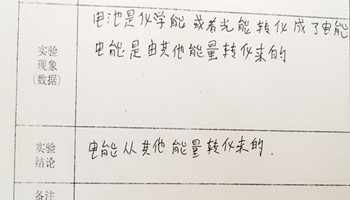 电池是化学能或者光能转化成了电能
电能是由其他能量转化来的
实验
现象
(数据)
实验
结论
电能从其他能量转化来的.
备注